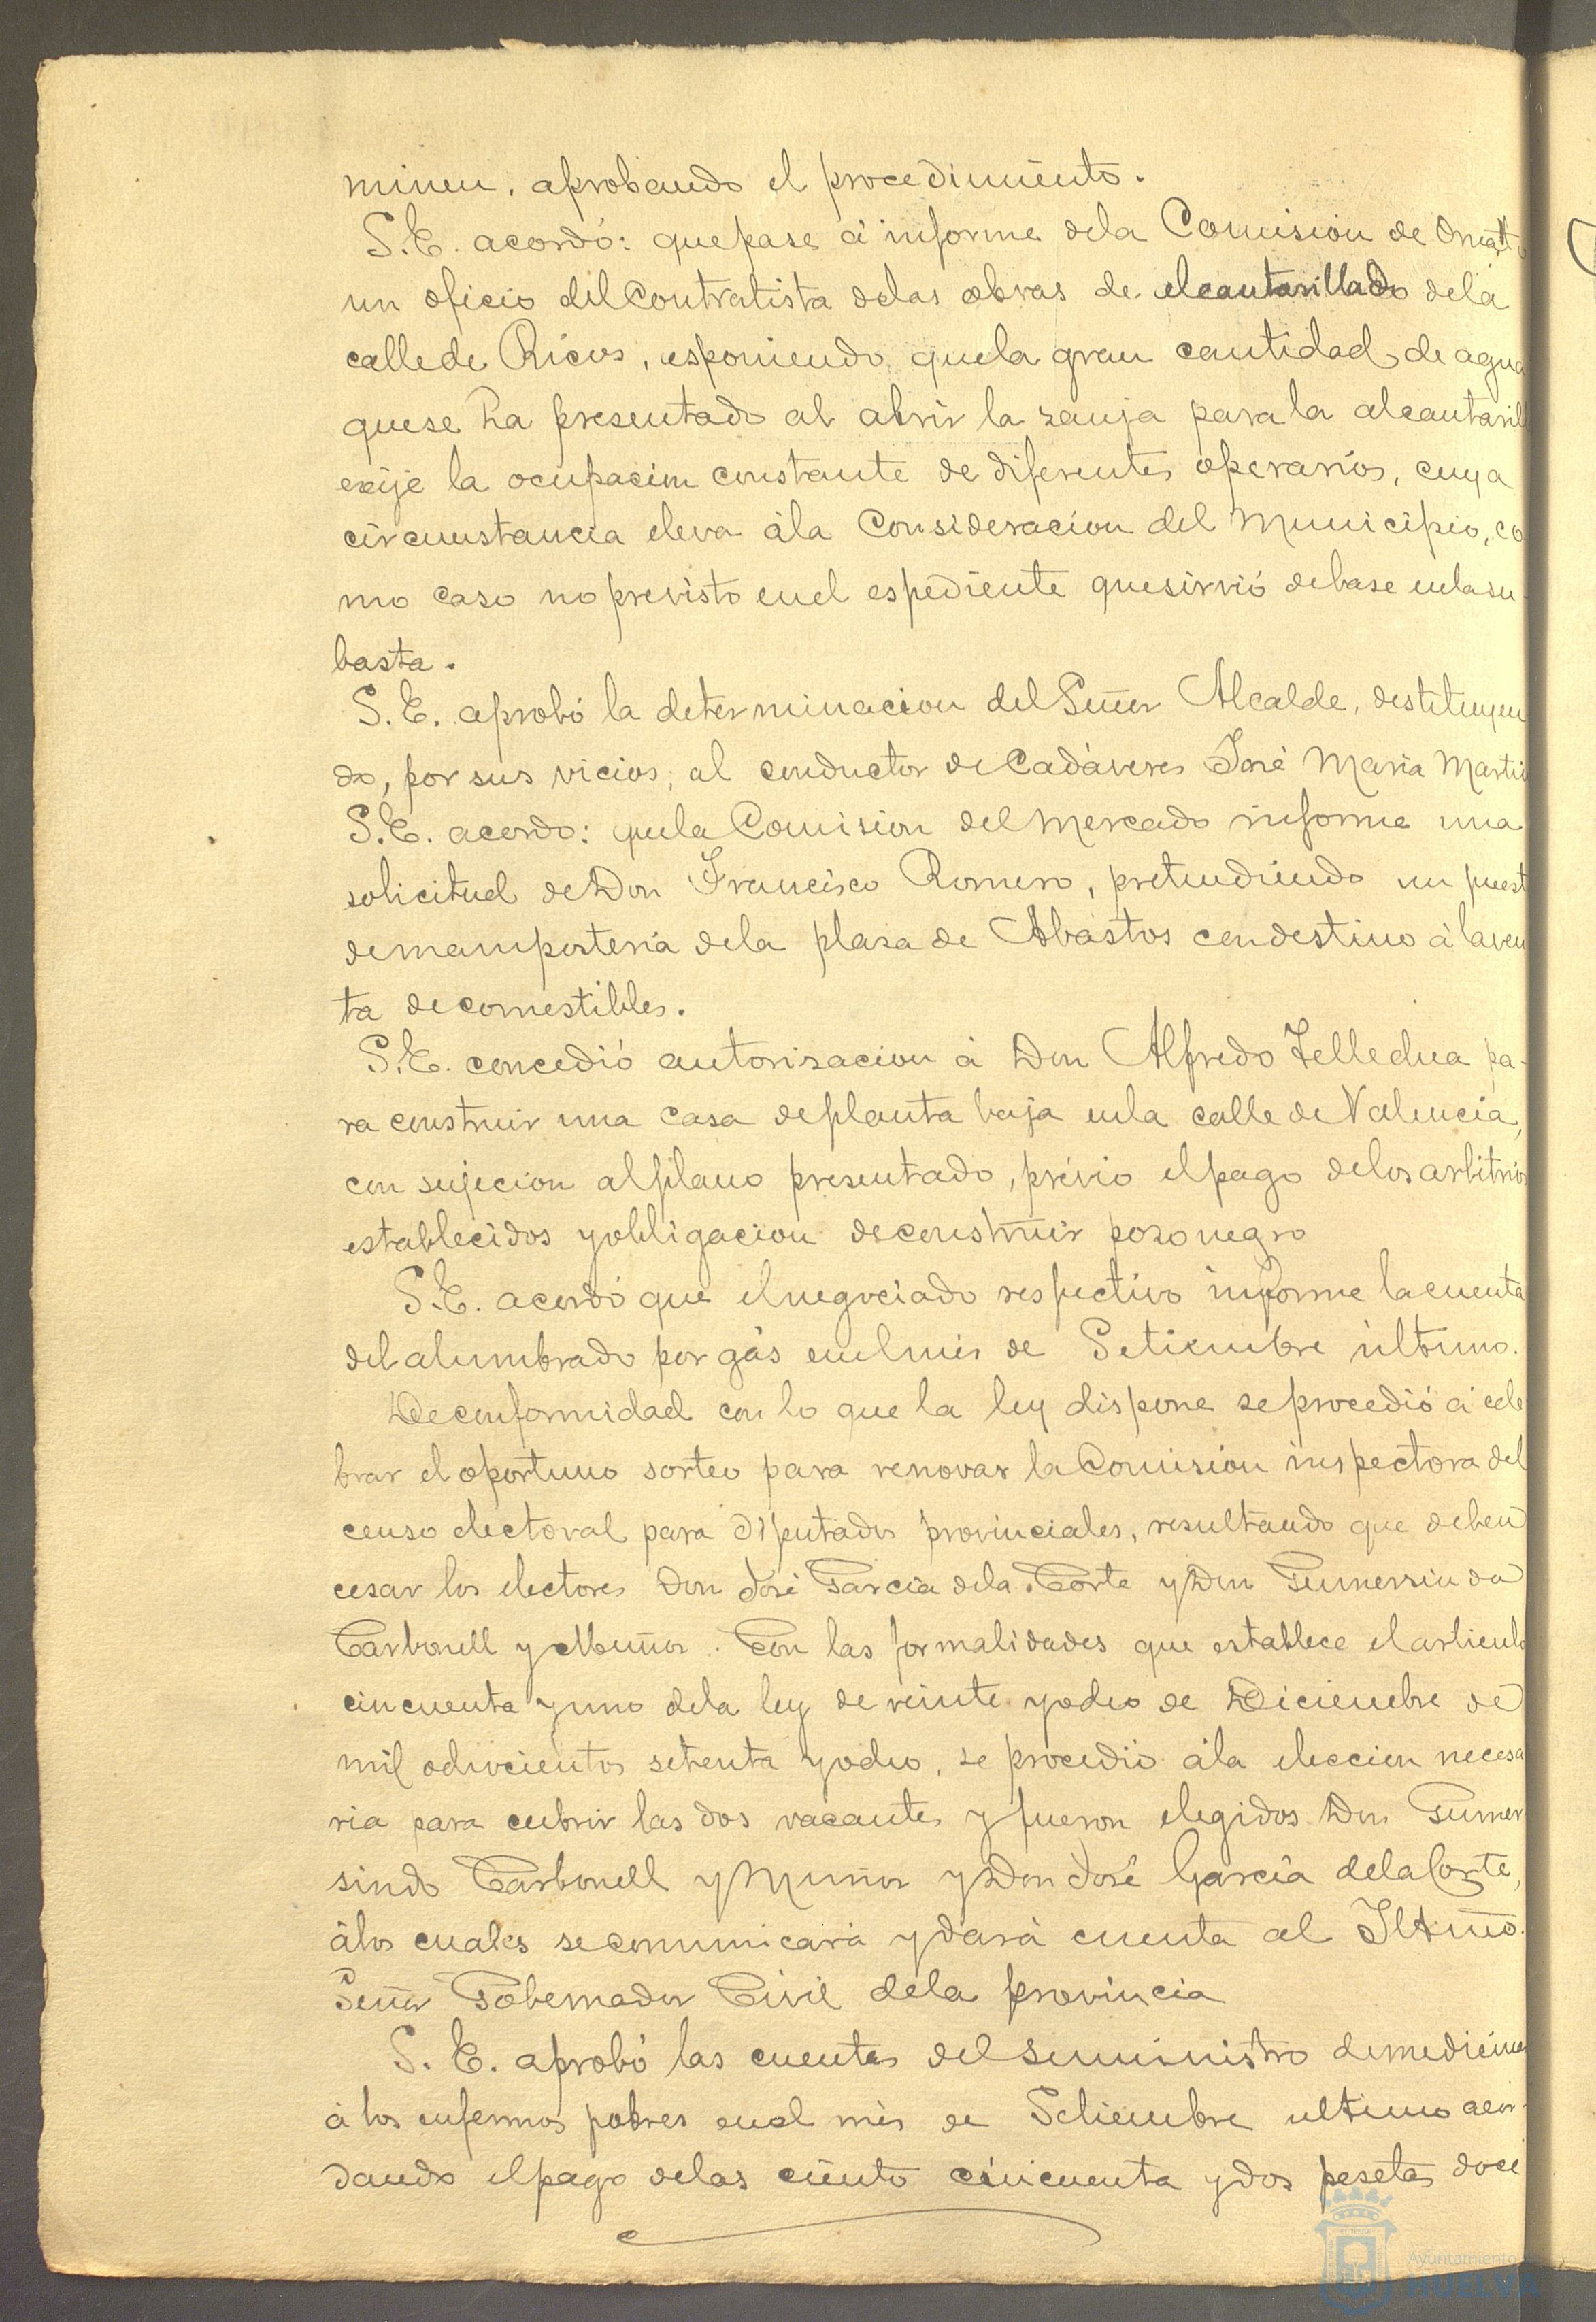 minen, aprobando el procedimiento.
S.E. acordó: que pase á informe de la Comision de Ornato
un oficio del Contratista de las obras de alcantarillado de la
calle de Ricos, esponiendo que la gran cantidad de agua
que se ha presentado al abrir la zanja para la alcantarill
exije la ocupacion constante de diferentes operarios, cuya
circunstancia eleva á la Consideracion del Municipio, co
mo caso no previsto en el espediente que sirvió de base en la su
basta.
S.E. aprobó la determinacion del Señor Alcalde, destituyen
do, por sus vicios, al conductor de Cadáveres José Maria Martin
S.E. acordo: que la Comision del Mercado informe una
solicitud de Don Francisco Romero, pretendiendo un puest
de mamposteria de la plaza de Abastos con destino á la ven
ta de comestibles.
S.E. concedió autorizacion á Don Alfredo pa-
ra construir una casa de planta baja en la calle de Valencia,
con sujecion al plano presentado, prévio el pago de los arbitrios
establecidos y obligacion de construir pozo negro
S.E. acordó que el negociado respectivo informe la cuenta
del alumbrado por gas en el mes de Setiembre último.
De conformidad con lo que la ley dispone se procedió á cele
brar el oportuno sorteo para renovar la Comision inspectora del
censo electoral para Diputados provinciales, resultando que deben
cesar los electores Don José Garcia de la Corte y Don Gumersindo
Carbonell y Muñoz. Con las formalidades que establece el articulo
cincuenta y uno de la ley de veinte y ocho de Diciembre de
mil ochocientos setenta y ocho, se procedió á la eleccion necesa
ria para cubrir las dos vacantes y fueron elegidos Don Gumer
sindo Carbonell y Muñoz y Don José Garcia de la Corte,
á los cuales se comunicará y dará cuenta al Iltmo.
Señor Gobernador Civil de la provincia
S.E. aprobó las cuentas del suministro de medicinas
á los enfermos pobres en el mes de Setiembre ultimo acor-
dando el pago de las ciento cincuenta y dos pesetas doce
Ayuntamiento
HUELVA